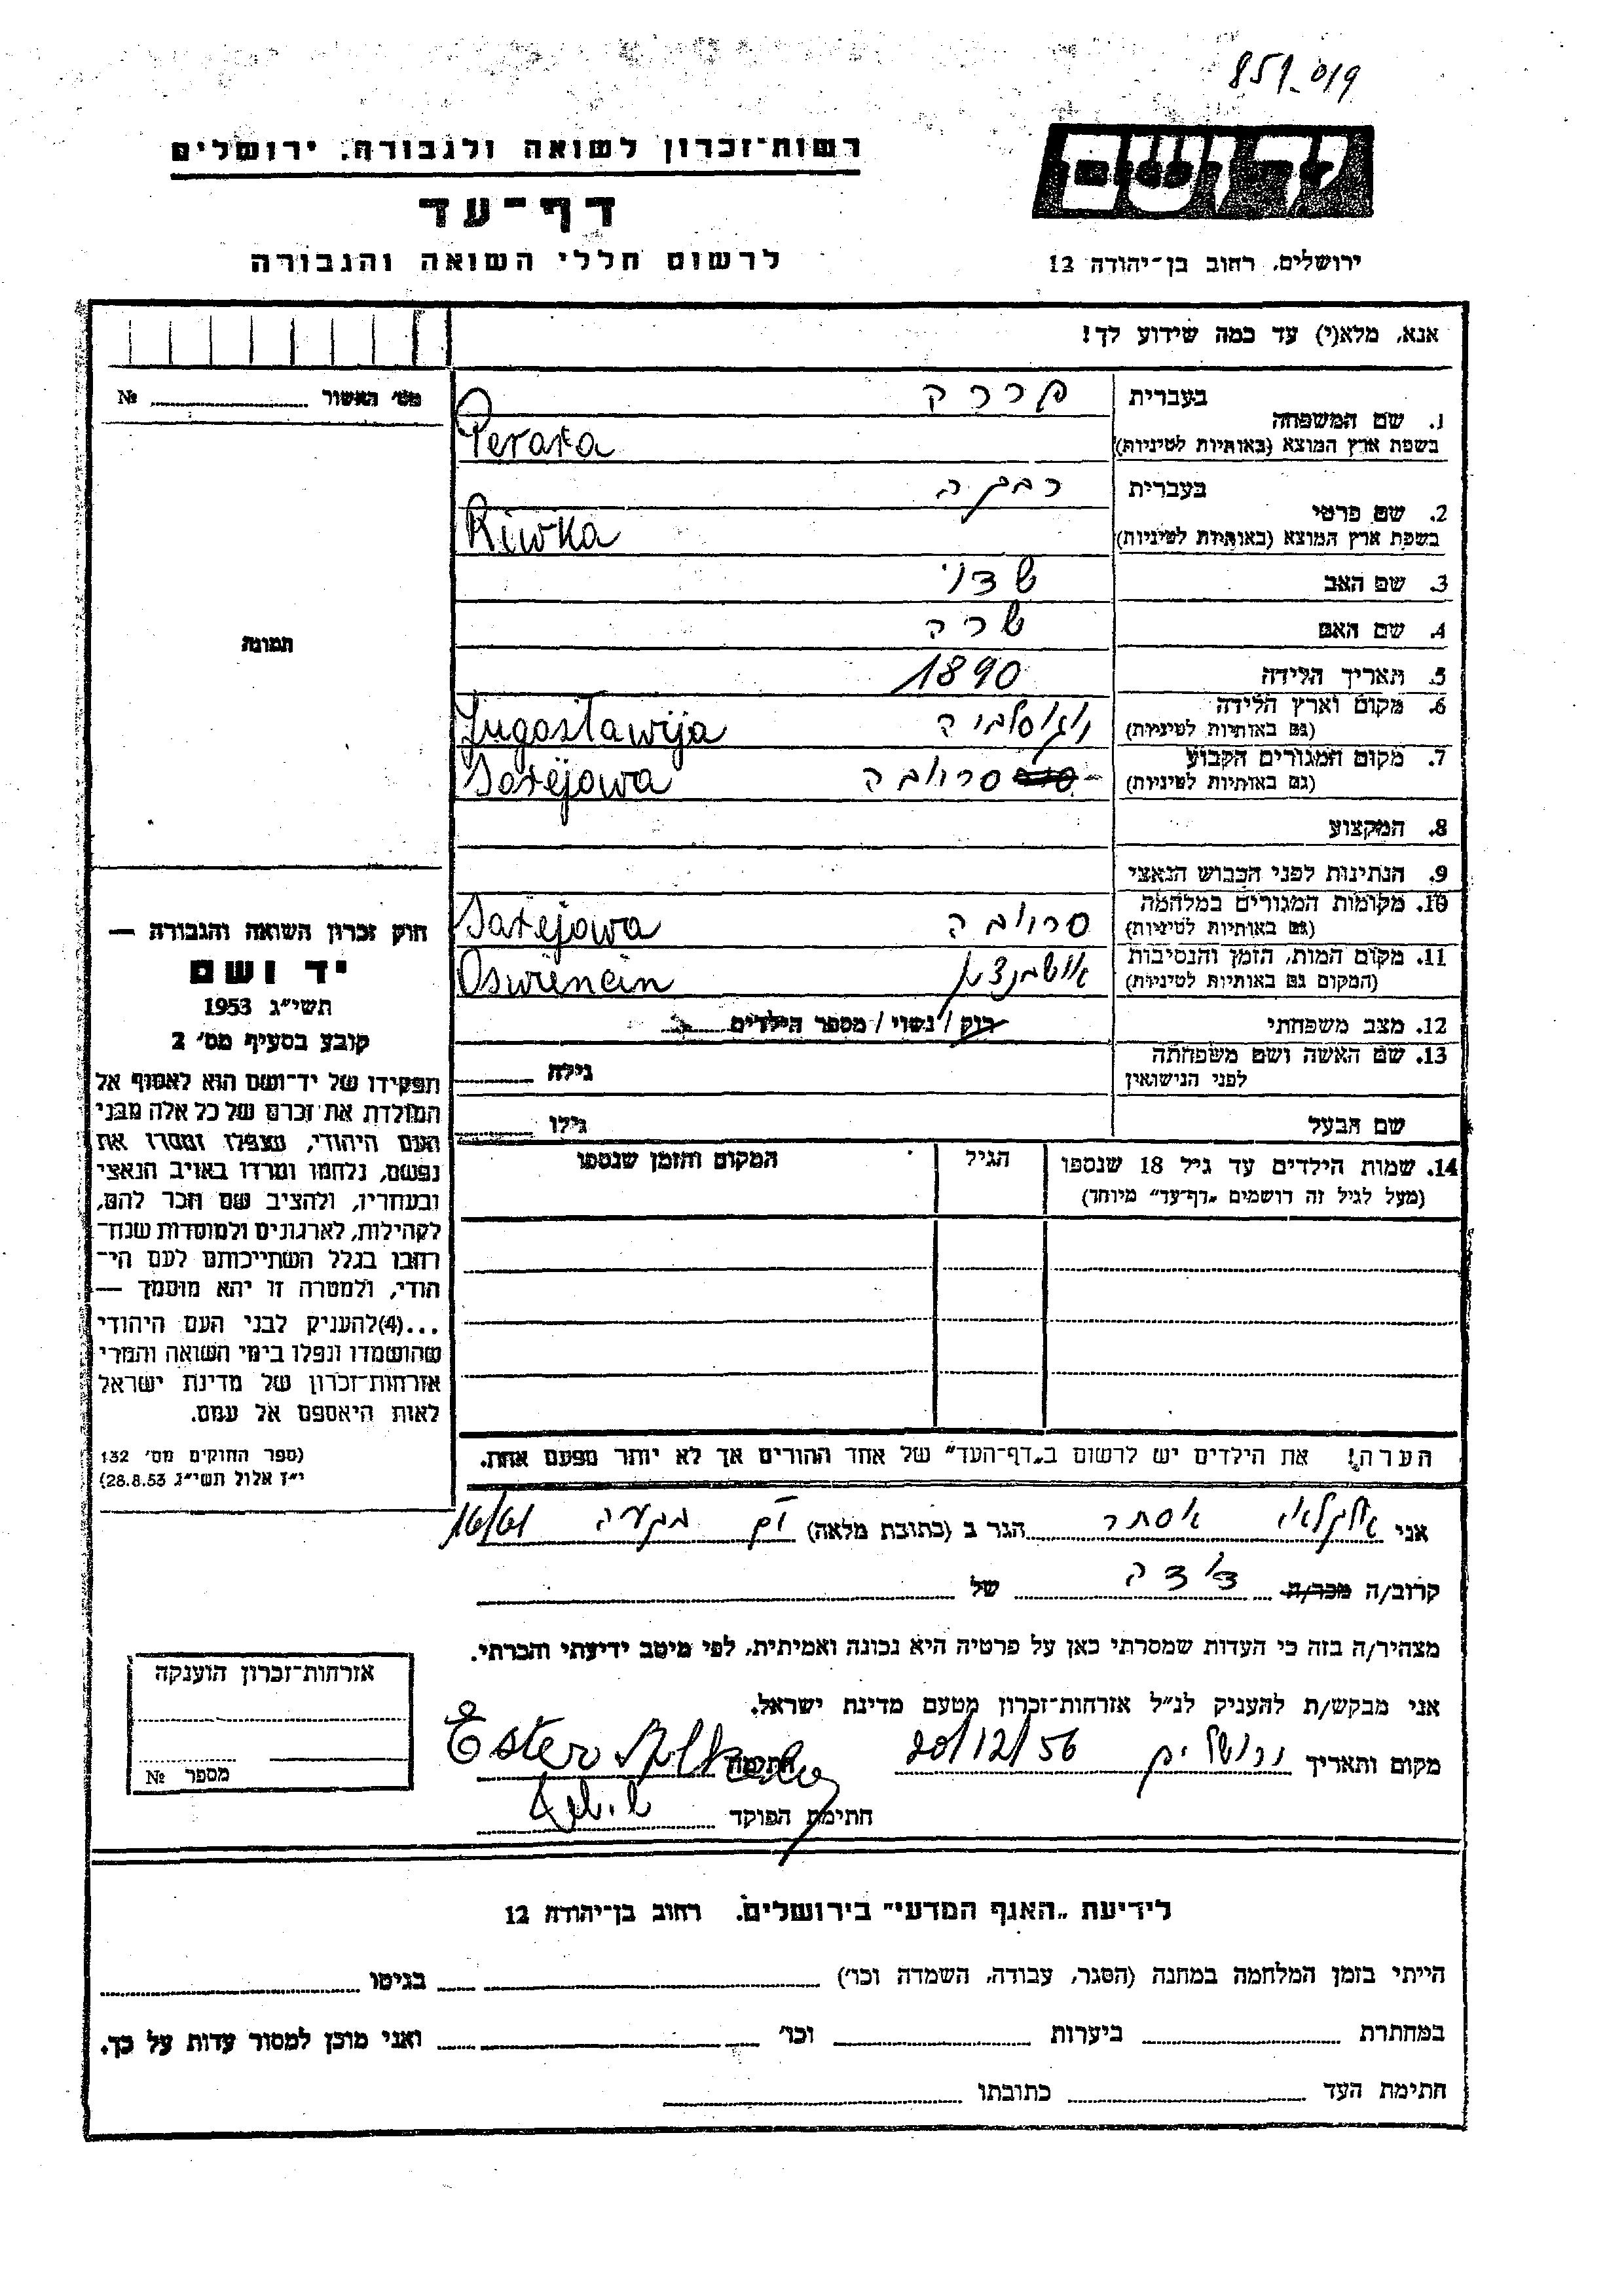 859-019
רשות־זכרון לשואה ולגבורה, ירושלים
דף־עד
לרשום חללי השואה והגבורה
יד ושם
ירושלים, רחוב בן־יהודה 12
אנא, מלא(י) עד כמה שידוע לך!
מס׳ האשור № 
תמונה
1. שם המשפחה בעברית פררה
בשפת ארץ המוצא (באותיות לטיניות) Perara
2. שם פרטי בעברית רבקה
בשפת ארץ המוצא (באותיות לטיניות) Riwka
3. שם האב
4. שם האם שרה
5. תאריך הלידה 1890
6. מקום וארץ הלידה יוגוסלביה
(גם באותיות לטיניות) Jugoslawija
7. מקום המגורים הקבוע סריובה
(גם באותיות לטיניות) Sarejowa
8. המקצוע
9. הנתינות לפני הכבוש הנאצי
10. מקומות המגורים במלחמה סריובה
(גם באותיות לטיניות) Sarejowa
11. מקום המות, הזמן והנסיבות
(המקום גם באותיות לטיניות)
12. מצב משפחתי רוק / נשוי / מספר הילדים
13. שם האשה ושם משפחתה לפני הנישואין גילה
שם הבעל גילו
14. שמות הילדים עד גיל 18 שנספו הגיל המקום והזמן שנספו
(מעל לגיל זה רושמים „דף־עד״ מיוחד)
הערה! את הילדים יש לרשום ב„דף־העד״ של אחד ההורים אך לא יותר מפעם אחת.
חוק זכרון השואה והגבורה —
יד ושם
תשי״ג 1953
קובע בסעיף מס׳ 2
תפקידו של יד־ושם הוא לאסוף אל
המולדת את זכרם של כל אלה מבני
העם היהודי, שנפלו ומסרו את
נפשם, נלחמו ומרדו באויב הנאצי
ובעוזריו, ולהציב שם וזכר להם,
לקהילות, לארגונים ולמוסדות שנח־
רחבו בגלל השתייכותם לעם הי־
הודי, ולמטרה זו יהא מוסמך —
...(4) להעניק לבני העם היהודי
שהושמדו ונפלו בימי השואה והמרי
אזרחות־זכרון של מדינת ישראל
לאות היאספם אל עמם.
(ספר החוקים מס׳ 132
י״ז אלול תשי״ג 28.8.53)
אני אלקלאי אסתר הגר ב (כתובת מלאה) בקעה
קרוב/ה מכר/ה דודה של
מצהיר/ה בזה כי העדות שמסרתי כאן על פרטיה היא נכונה ואמיתית, לפי מיטב ידיעתי והכרתי.
אני מבקש/ת להעניק לנ״ל אזרחות־זכרון מטעם מדינת ישראל.
מקום ותאריך ירושלים 20/12/56 חתימה Ester Alkalay
חתימת הפוקד
אזרחות־זכרון הוענקה
מספר №
לידיעת „האגף המדעי״ בירושלים, רחוב בן־יהודה 12
הייתי בזמן המלחמה במחנה (הסגר, עבודה, השמדה וכו׳) בגיטו
במחתרת ביערות וכו׳ ואני מוכן למסור עדות על כך.
חתימת העד כתובתו